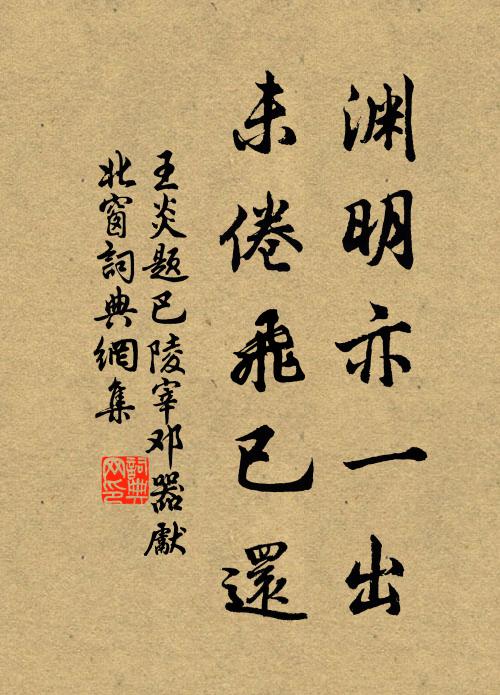 渊明亦一出
未倦飛已還
王炎题巴陵宰邓器獻
北窗詞典網集
詞典网印